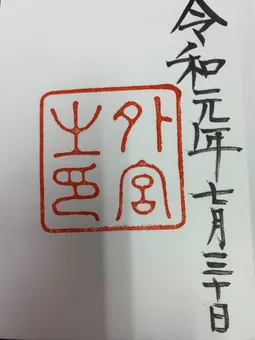 令和元年七月三十日
外宮
之印